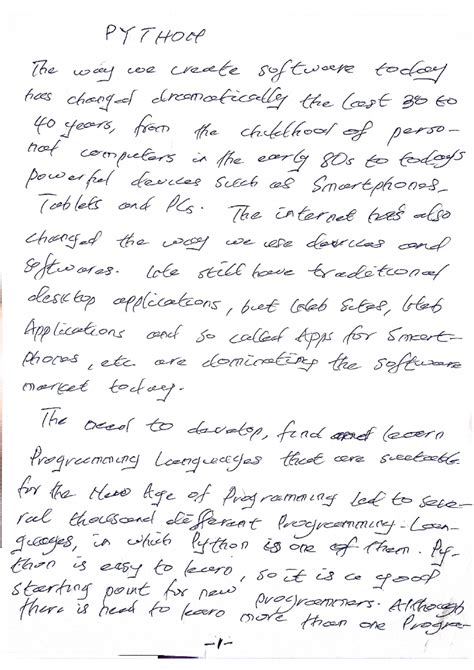 PYTHON
The way we create software today
has changed dramatically the last 30 to
40 years, from the childhood of perso-
nal computers in the early 80s to todays
powerful devices such as Smartphones,
Tablets and PCs. The internet has also
changed the way we use devices and
softwares. We still have traditional
desktop applications, but Web Sites, Web
Applications and so called Apps for Smart-
phones, etc. are dominating the software
market today.
The need to develop, find and learn
Programming Languages that are suitable
for the New Age of Programming led to seve-
ral thousand different Programming Lan-
guages, in which Python is one of them. Py-
thon is easy to learn, so it is a good
starting point for new programmers. Although
there is need to learn more than one Progra-
-1-